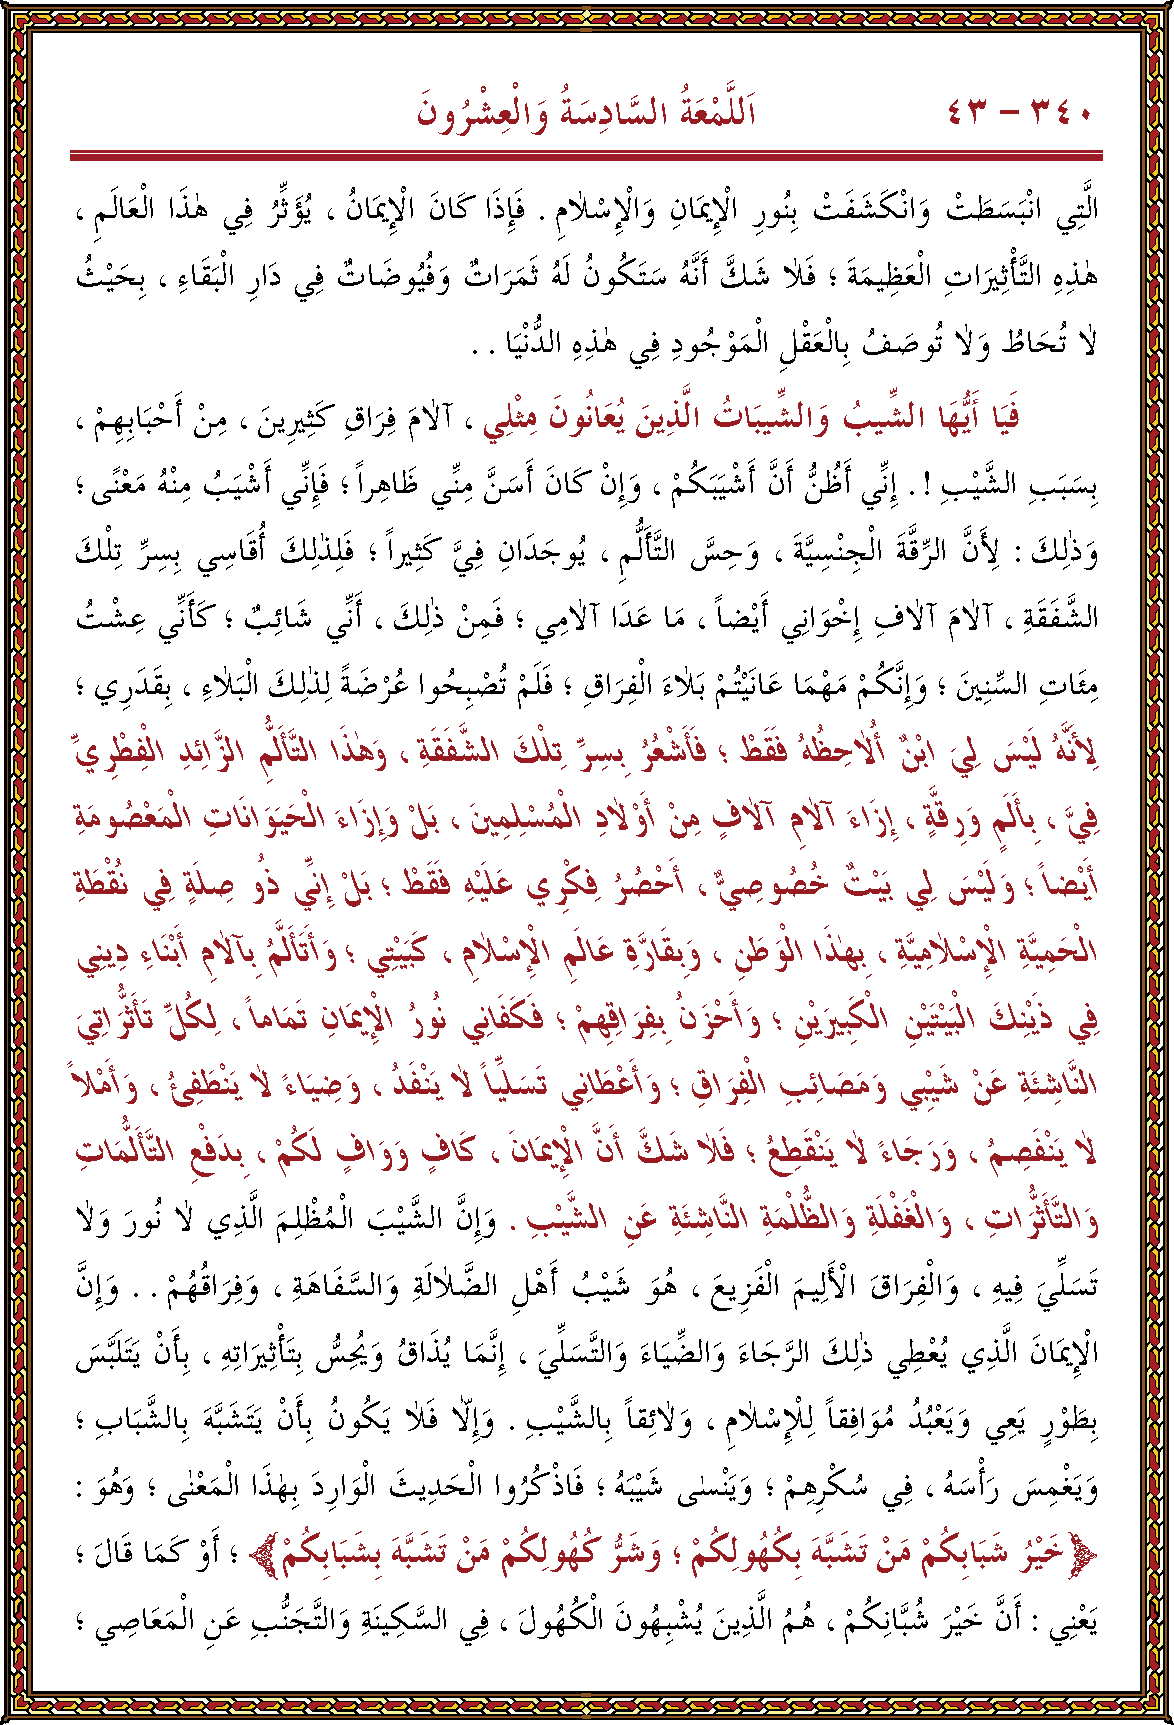 ٣٤٠ – ٤٣ اَللَّمْعَةُ السَّادِسَةُ وَالْعِشْرُونَ
الَّتِي انْبَسَطَتْ وَانْكَشَفَتْ بِنُورِ الْإِيمَانِ وَالْإِسْلَامِ . فَإِذَا كَانَ الْإِيمَانُ ، يُؤَثِّرُ فِي هٰذَا الْعَالَمِ ،
هٰذِهِ التَّأْثِيرَاتِ الْعَظِيمَةَ ؛ فَلَا شَكَّ أَنَّهُ سَتَكُونُ لَهُ ثَمَرَاتٌ وَفُيُوضَاتٌ فِي دَارِ الْبَقَاءِ ، بِحَيْثُ
لَا تُحَاطُ وَلَا تُوصَفُ بِالْعَقْلِ الْمَوْجُودِ فِي هٰذِهِ الدُّنْيَا . .
فَيَا أَيُّهَا الشِّيبُ وَالشِّيبَاتُ الَّذِينَ يُعَانُونَ مِثْلِي ، آلَامَ فِرَاقِ كَثِيرِينَ ، مِنْ أَحْبَابِهِمْ ،
بِسَبَبِ الشَّيْبِ ! . إِنِّي أَظُنُّ أَنَّ أَشْيَبَكُمْ ، وَإِنْ كَانَ أَسَنَّ مِنِّي ظَاهِراً ؛ فَإِنِّي أَشْيَبُ مِنْهُ مَعْنًى ؛
وَذٰلِكَ : لِأَنَّ الرِّقَّةَ الْجِنْسِيَّةَ ، وَحِسَّ التَّأَلُّمِ ، يُوجَدَانِ فِيَّ كَثِيراً ؛ فَلِذٰلِكَ أُقَاسِي بِسِرِّ تِلْكَ
الشَّفَقَةِ ، آلَامَ آلَافِ إِخْوَانِي أَيْضاً ، مَا عَدَا آلَامِي ؛ فَمِنْ ذٰلِكَ ، أَنِّي شَائِبٌ ؛ كَأَنِّي عِشْتُ
مِئَاتِ السِّنِينَ ؛ وَإِنَّكُمْ مَهْمَا عَانَيْتُمْ بَلَاءَ الْفِرَاقِ ؛ فَلَمْ تُصْبِحُوا عُرْضَةً لِذٰلِكَ الْبَلَاءِ ، بِقَدَرِي ؛
لِأَنَّهُ لَيْسَ لِيَ ابْنٌ أُلَاحِظُهُ فَقَطْ ؛ فَأَشْعُرُ بِسِرِّ تِلْكَ الشَّفَقَةِ ، وَهٰذَا التَّأَلُّمِ الزَّائِدِ الْفِطْرِيِّ
فِيَّ ، بِأَلَمٍ وَرِقَّةٍ ، إِزَاءَ آلَامِ آلَافٍ مِنْ أَوْلَادِ الْمُسْلِمِينَ ، بَلْ وَإِزَاءَ الْحَيَوَانَاتِ الْمَعْصُومَةِ
أَيْضاً ؛ وَلَيْسَ لِي بَيْتٌ خُصُوصِيٌّ ، أَحْصُرُ فِكْرِي عَلَيْهِ فَقَطْ ؛ بَلْ إِنِّي ذُو صِلَةٍ فِي نُقْطَةِ
الْحَمِيَّةِ الْإِسْلَامِيَّةِ ، بِهٰذَا الْوَطَنِ ، وَبِقَارَّةِ عَالَمِ الْإِسْلَامِ ، كَبَيْتِي ؛ وَأَتَأَلَّمُ بِآلَامِ أَبْنَاءِ دِينِي
فِي ذَيْنِكَ الْبَيْتَيْنِ الْكَبِيرَيْنِ ؛ وَأَحْزَنُ بِفِرَاقِهِمْ ؛ فَكَفَانِي نُورُ الْإِيمَانِ تَمَاماً ، لِكُلِّ تَأَثُّرَاتِيَ
النَّاشِئَةِ عَنْ شَيْبِي وَمَصَائِبِ الْفِرَاقِ ؛ وَأَعْطَانِي تَسَلِّياً لَا يَنْفَدُ ، وَضِيَاءً لَا يَنْطَفِئُ ، وَأَمَلاً
لَا يَنْفَصِمُ ، وَرَجَاءً لَا يَنْقَطِعُ ؛ فَلَا شَكَّ أَنَّ الْإِيمَانَ ، كَافٍ وَوَافٍ لَكُمْ ، بِدَفْعِ التَّأَلُّمَاتِ
وَالتَّأَثُّرَاتِ ، وَالْغَفْلَةِ وَالظُّلْمَةِ النَّاشِئَةِ عَنِ الشَّيْبِ . وَإِنَّ الشَّيْبَ الْمُظْلِمَ الَّذِي لَا نُورَ وَلَا
تَسَلِّيَ فِيهِ ، وَالْفِرَاقَ الْأَلِيمَ الْفَزِيعَ ، هُوَ شَيْبُ أَهْلِ الضَّلَالَةِ وَالسَّفَاهَةِ ، وَفِرَاقُهُمْ . . وَإِنَّ
الْإِيمَانَ الَّذِي يُعْطِي ذٰلِكَ الرَّجَاءَ وَالضِّيَاءَ وَالتَّسَلِّيَ ، إِنَّمَا يُذَاقُ وَيُحِسُّ بِتَأْثِيرَاتِهِ ، بِأَنْ يَتَلَبَّسَ
بِطَوْرٍ يَعِي وَيَعْبُدُ مُوَافِقاً لِلْإِسْلَامِ ، وَلَائِقاً بِالشَّيْبِ . وَإِلَّا فَلَا يَكُونُ بِأَنْ يَتَشَبَّهَ بِالشَّبَابِ ؛
وَيَغْمِسَ رَأْسَهُ ، فِي سُكْرِهِمْ ؛ وَيَنْسٰى شَيْبَهُ ؛ فَاذْكُرُوا الْحَدِيثَ الْوَارِدَ بِهٰذَا الْمَعْنٰى ؛ وَهُوَ :
﴿خَيْرُ شَبَابِكُمْ مَنْ تَشَبَّهَ بِكُهُولِكُمْ ؛ وَشَرُّ كُهُولِكُمْ مَنْ تَشَبَّهَ بِشَبَابِكُمْ﴾ ؛ أَوْ كَمَا قَالَ ؛
يَعْنِي : أَنَّ خَيْرَ شُبَّانِكُمْ ، هُمُ الَّذِينَ يُشْبِهُونَ الْكُهُولَ ، فِي السَّكِينَةِ وَالتَّجَنُّبِ عَنِ الْمَعَاصِي ؛